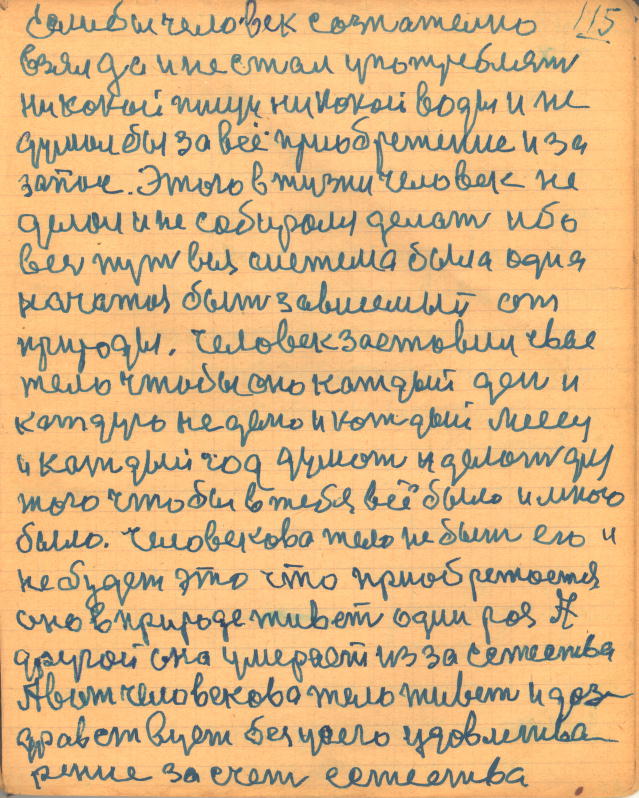 115
Если бы человек сознателно
взял да и не стал употреблят
никокой пищи никокой воды и не
думол бы за всё приобретение и за
запас. Этого в жизни человек не
делол и не собиролся делат ибо
вся пут вся система была одна
начатоя быт зависимый от
природы. Человек заставил свае
тело чтобы оно каждый ден и
каждую неделю и кождый месец
и каждый год думот и делат для
того чтобы в тебя всё было и много
было. Человекова тело не быт его и
не будет это что приобретается
оно в природе живет один роз А
другой она умерает из за естества
А вот человекова тело живет и доз
здравствует без усего удовлетва
рение за счет естества